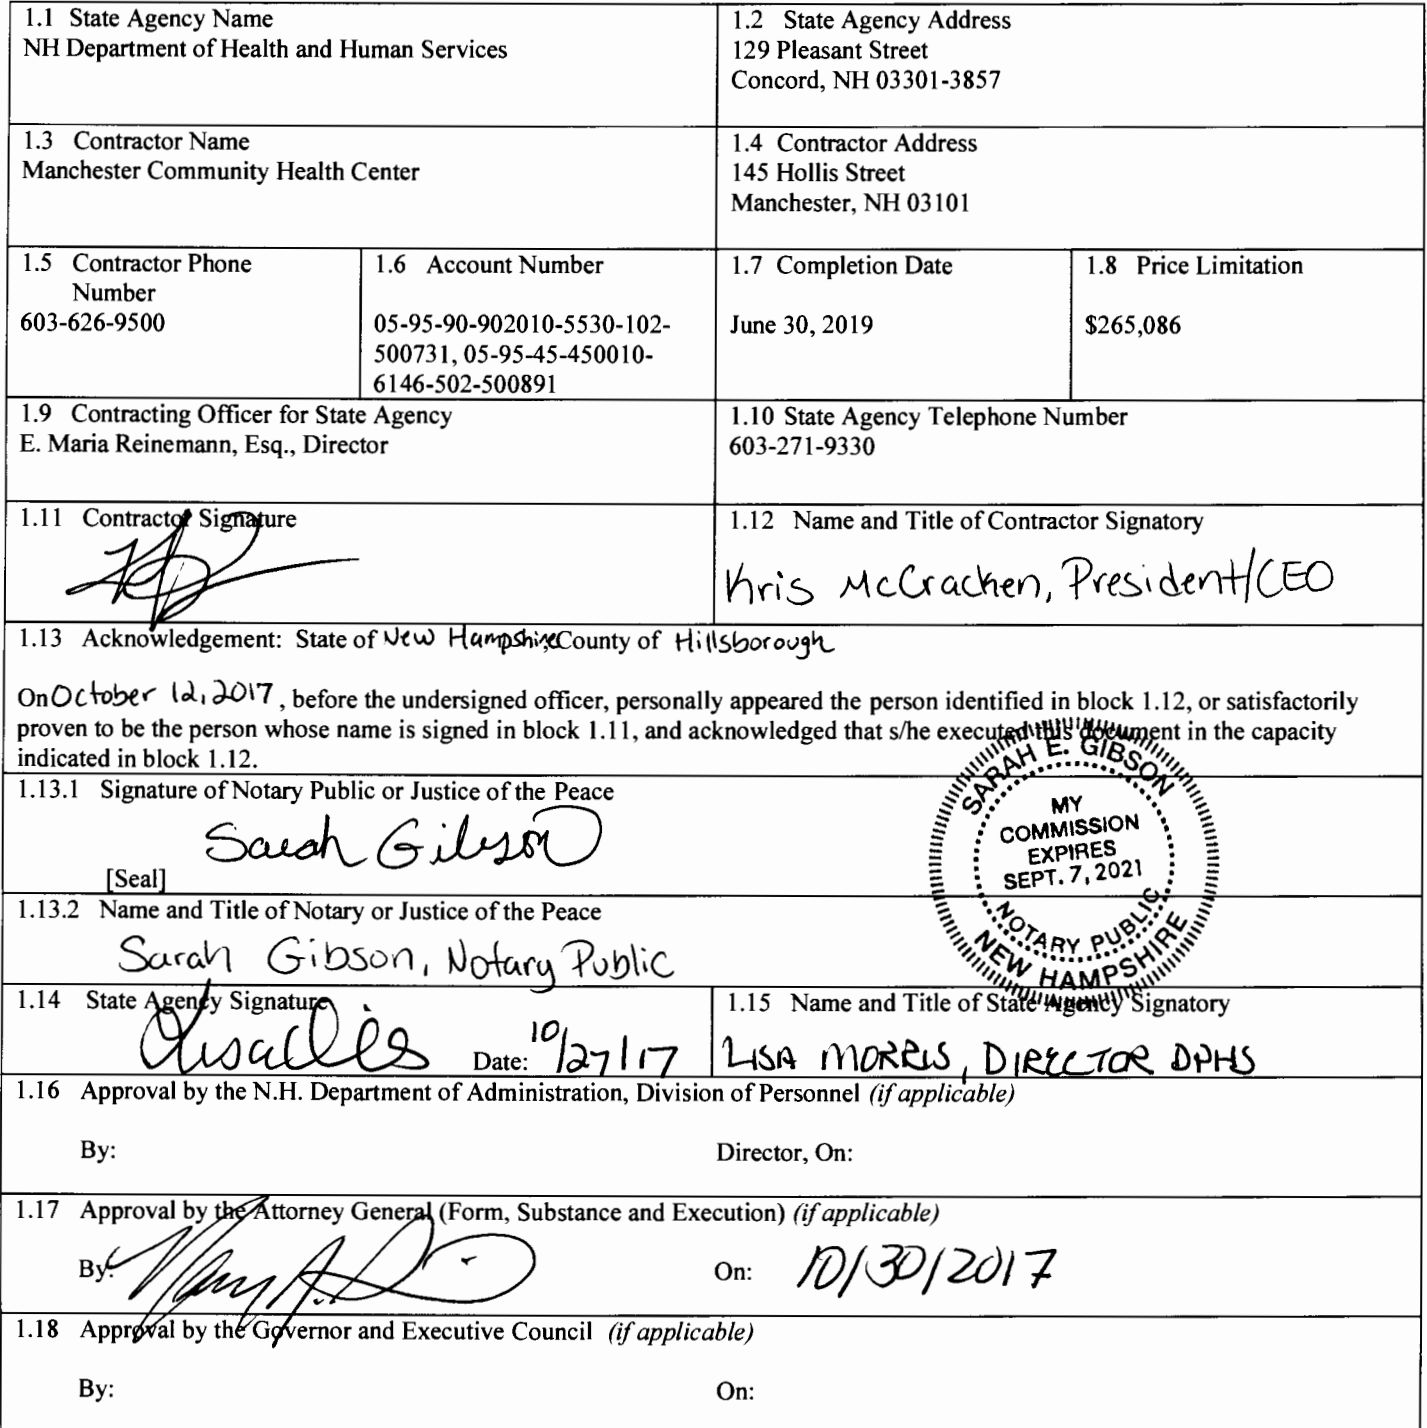 1.1 State Agency Name
NH Department of Health and Human Services
1.2 State Agency Address
129 Pleasant Street
Concord, NH 03301-3857
1.3 Contractor Name
Manchester Community Health Center
1.4 Contractor Address
145 Hollis Street
Manchester, NH 03101
1.5 Contractor Phone
Number
603-626-9500
1.6 Account Number
05-95-90-902010-5530-102-
500731, 05-95-45-450010-
6146-502-500891
1.7 Completion Date
June 30, 2019
1.8 Price Limitation
$265,086
1.9 Contracting Officer for State Agency
E. Maria Reinemann, Esq., Director
1.10 State Agency Telephone Number
603-271-9330
1.11 Contractor Signature
1.12 Name and Title of Contractor Signatory
Kris McCracken, President/CEO
1.13 Acknowledgement: State of New Hampshire, County of Hillsborough
On October 12, 2017, before the undersigned officer, personally appeared the person identified in block 1.12, or satisfactorily
proven to be the person whose name is signed in block 1.11, and acknowledged that s/he executed this document in the capacity
indicated in block 1.12.
1.13.1 Signature of Notary Public or Justice of the Peace
Sarah Gibson
[Seal]
SARAH E. GIBSON
MY
COMMISSION
EXPIRES
SEPT. 7, 2021
NOTARY PUBLIC
NEW HAMPSHIRE
1.13.2 Name and Title of Notary or Justice of the Peace
Sarah Gibson, Notary Public
1.14 State Agency Signature
Date: 10/27/17
1.15 Name and Title of State Agency Signatory
LISA MORRIS, DIRECTOR DPHS
1.16 Approval by the N.H. Department of Administration, Division of Personnel (if applicable)
By:
Director, On:
1.17 Approval by the Attorney General (Form, Substance and Execution) (if applicable)
By:
On: 10/30/2017
1.18 Approval by the Governor and Executive Council (if applicable)
By:
On: